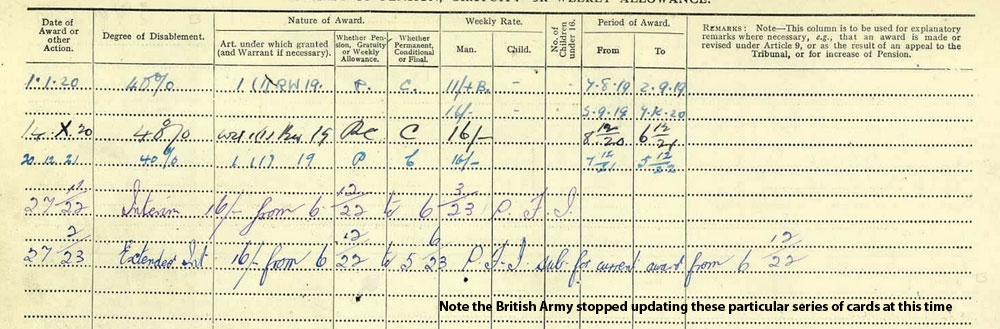 Date of Award or other Action.
Degree of Disablement.
Nature of Award.
Art. under which granted (and Warrant if necessary).
Whether Pension, Gratuity or Weekly Allowance.
Whether Permanent, Conditional or Final.
Weekly Rate.
Man.
Child.
No. of Children under 16.
Period of Award.
From
To
REMARKS: Note—This column is to be used for explanatory remarks where necessary, e.g., that an award is made or revised under Article 9, or as the result of an appeal to the Tribunal, or for increase of Pension.
1.1.20 40% 1 (1) RW 19. P. C. 11/+B. - 7-8-19 2-9-19
16/- - 3-9-19 7-12-20
X 20 40% 19 C 16/- 8 12/20 6 12/21
20.12.21 40% 1 19 P C 16/- 7 12/21 5 12/22
27 11/22 Interim 16/- from 6 12/22 to 6 3/23 P. F. I.
27 2/23 Extended Int 16/- from 6 12/22 to 5 6/23 P. F. I. sub. for current award from 6 12/22
Note the British Army stopped updating these particular series of cards at this time